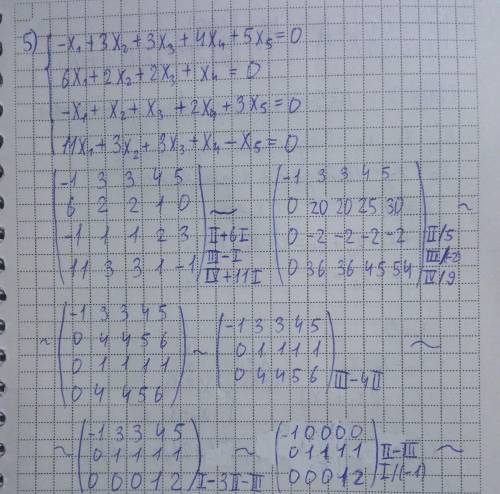 5) -x₁+3x₂+3x₃+4x₄+5x₅=0
6x₁+2x₂+2x₃+x₄=0
-x₁+x₂+x₃+2x₄+3x₅=0
11x₁+3x₂+3x₃+x₄-x₅=0
-1 3 3 4 5
6 2 2 1 0
-1 1 1 2 3 II+6I
III-I
11 3 3 1 -1 IV+11I
~
-1 3 3 4 5
0 20 20 25 30
0 -2 -2 -2 -2 II/5
III/(-2)
0 36 36 45 54 IV/9
~
~ -1 3 3 4 5
0 4 4 5 6
0 1 1 1 1
0 4 4 5 6
~ -1 3 3 4 5
0 1 1 1 1
0 4 4 5 6 III-4II
~
~ -1 3 3 4 5
0 1 1 1 1
0 0 0 1 2 I-3II-III
~ -1 0 0 0 0
0 1 1 1 1 II-III
I/(-1)
0 0 0 1 2
~